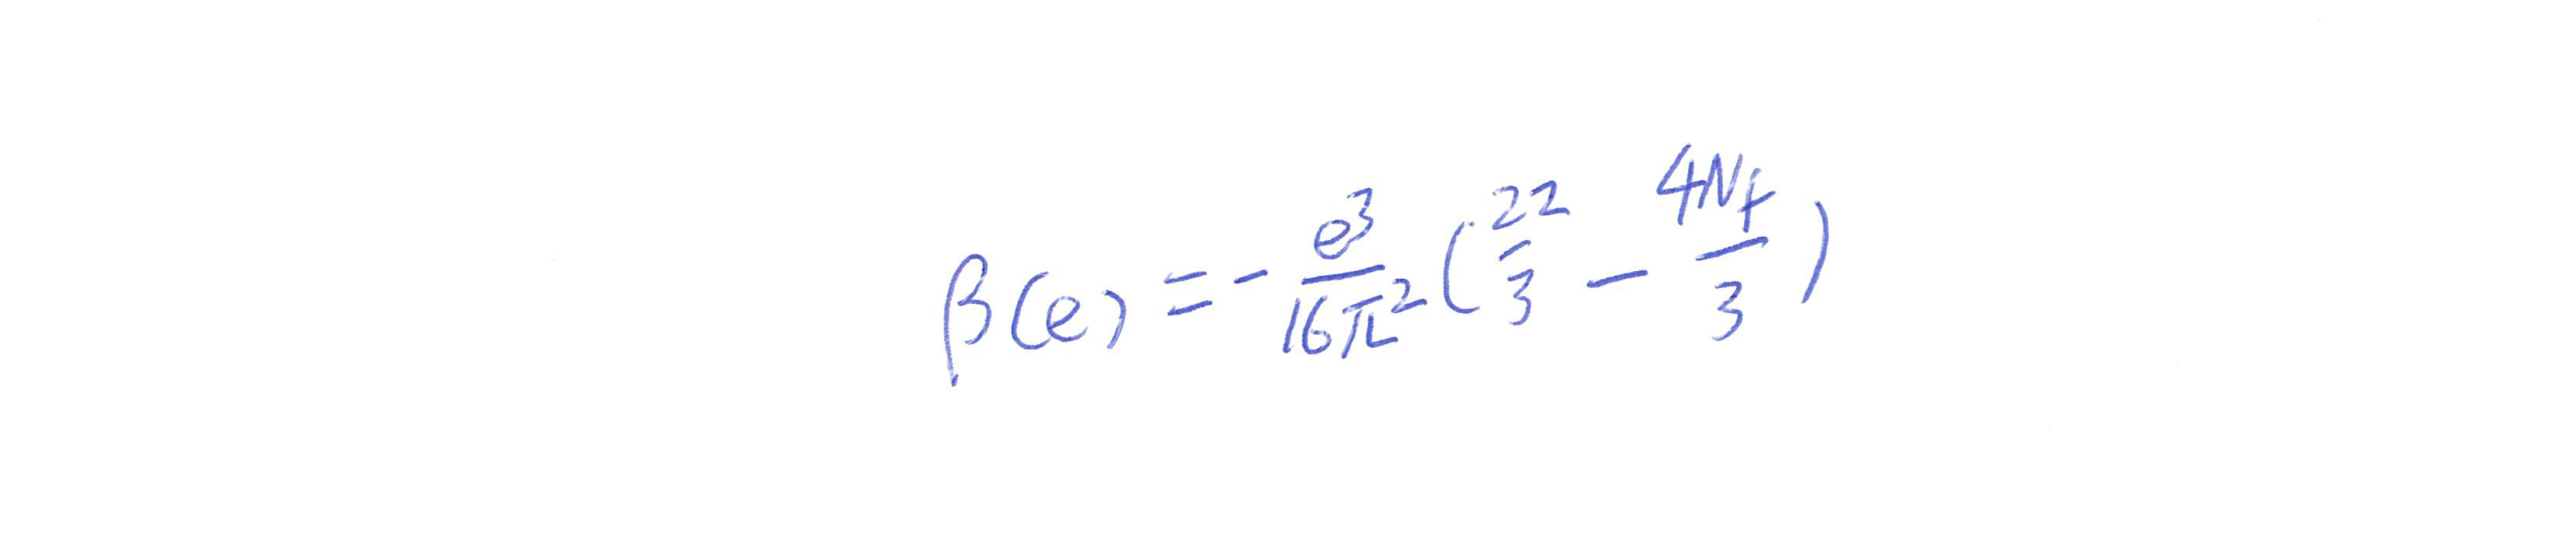 β(e) = - \frac{e^3}{16π^2} ( \frac{22}{3} - \frac{4N_f}{3} )